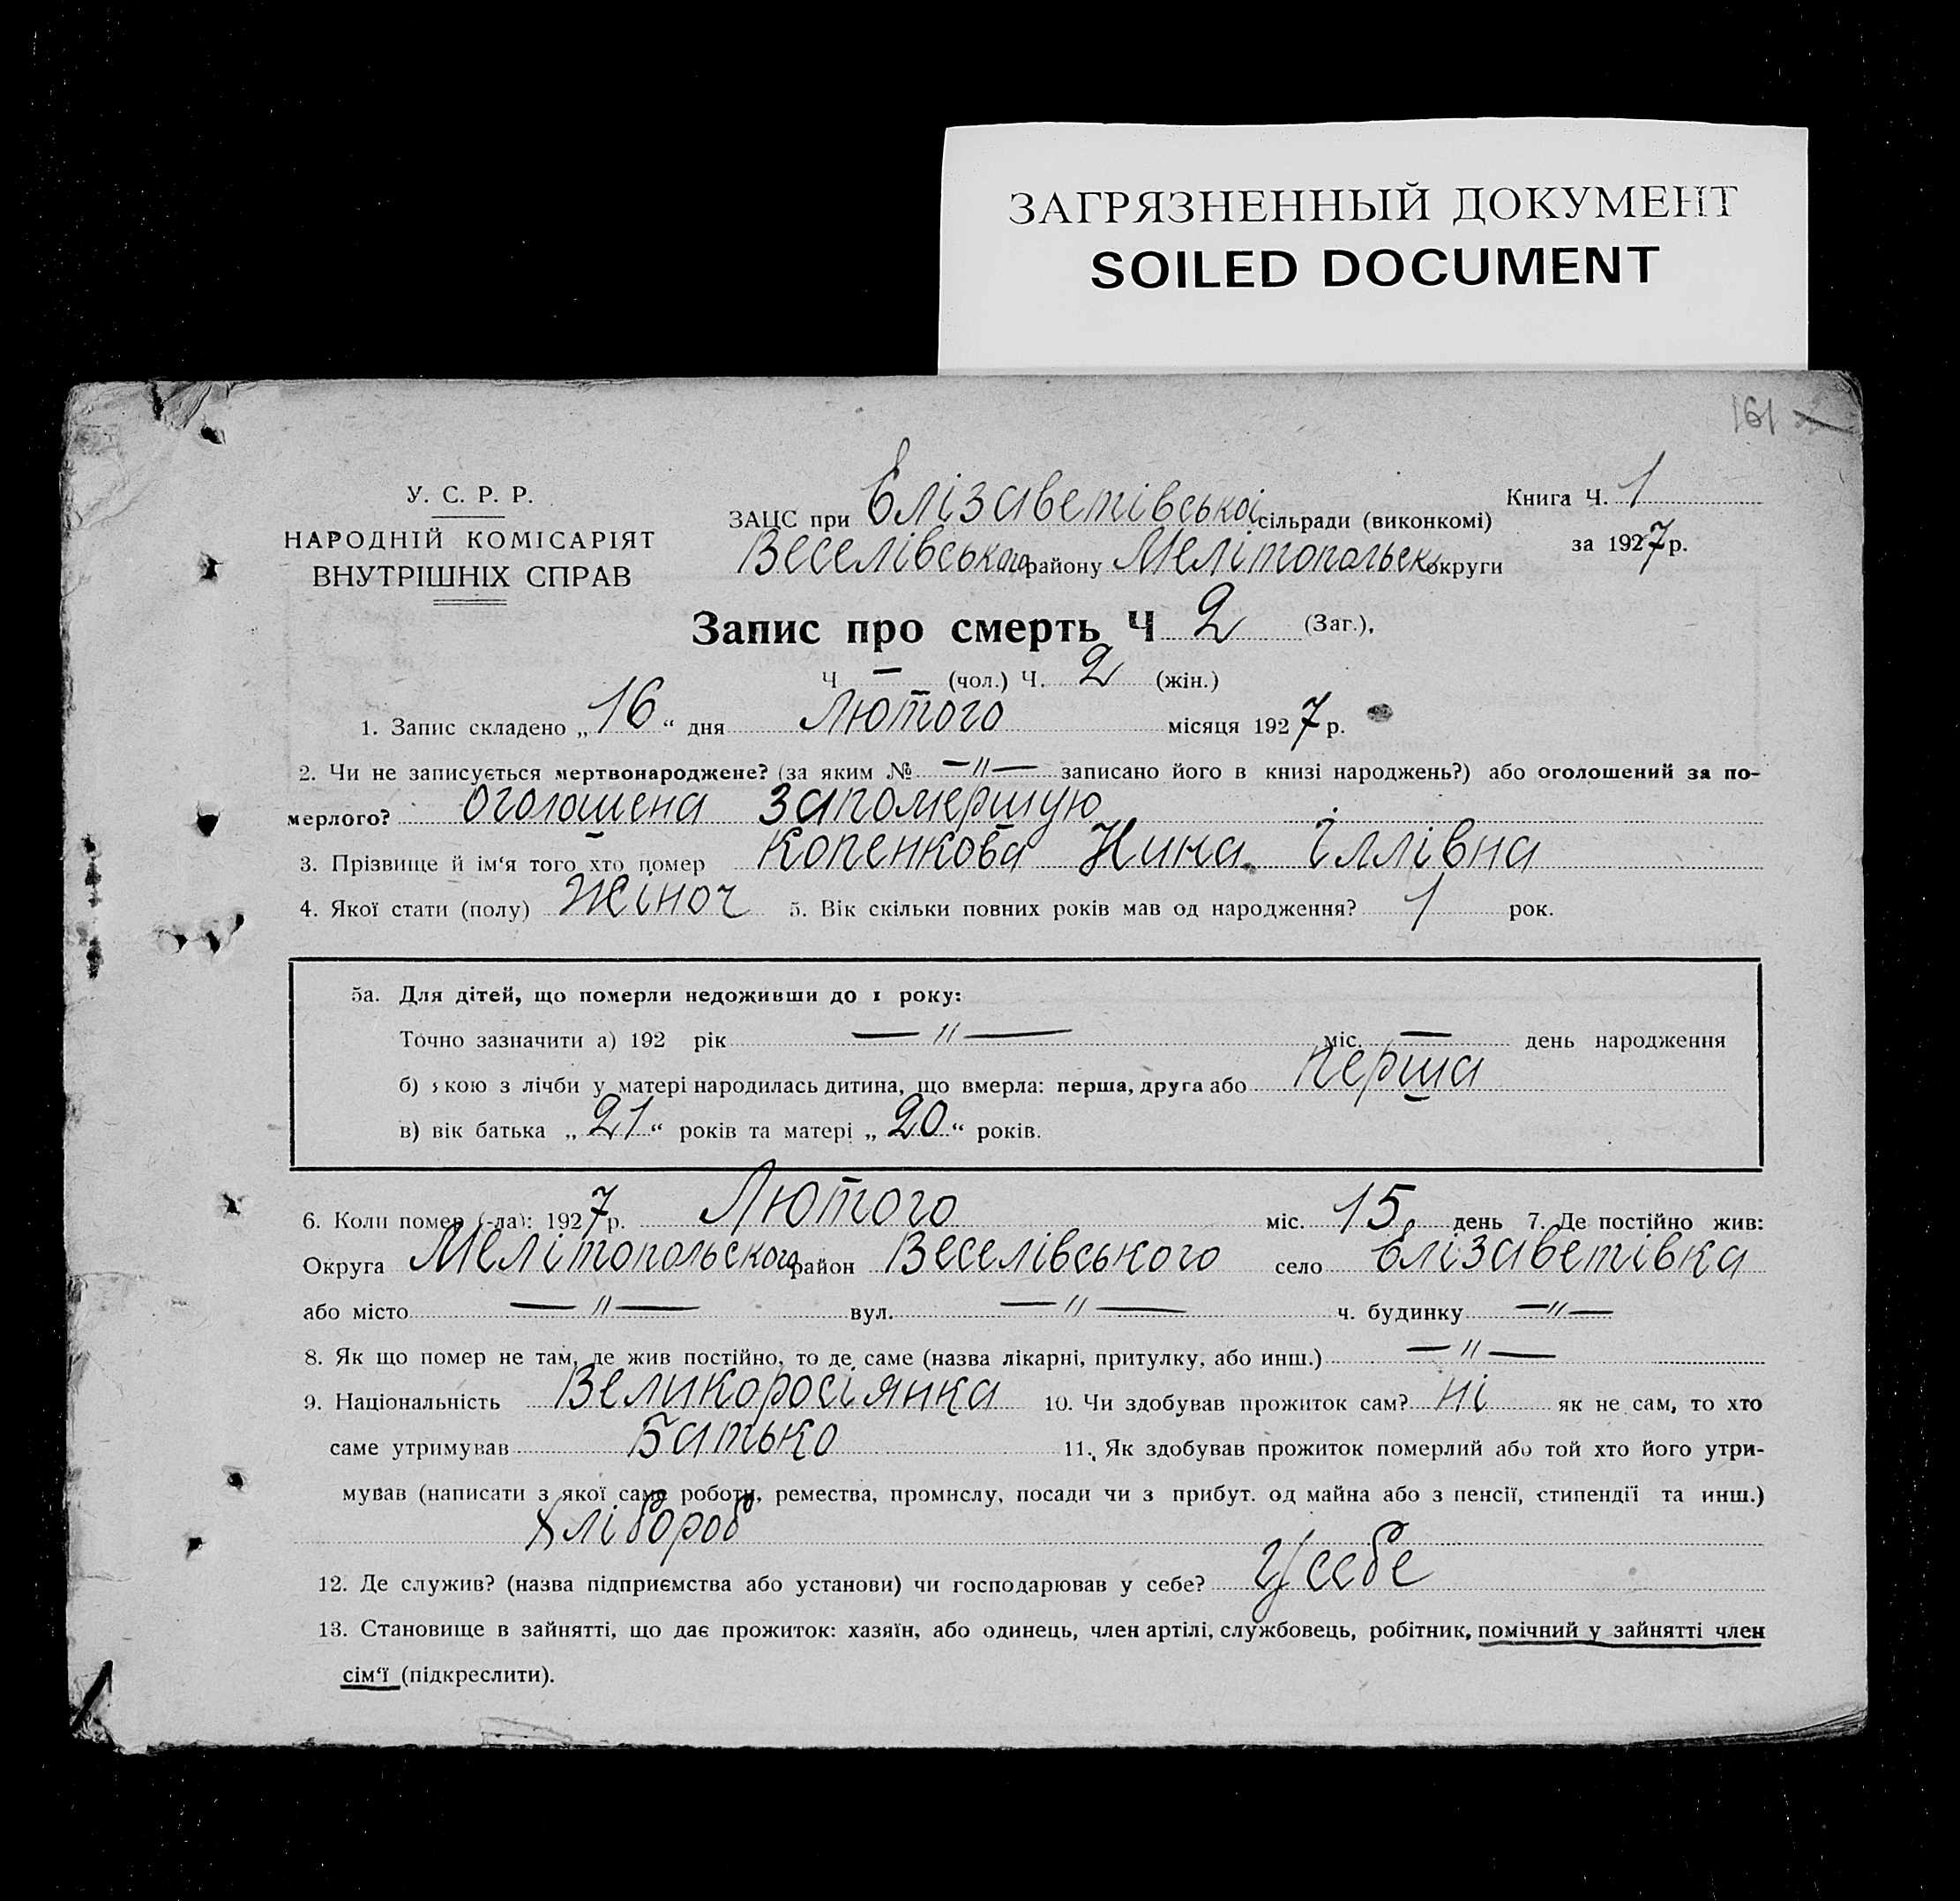 ЗАГРЯЗНЕННЫЙ ДОКУМЕНТ
SOILED DOCUMENT
161
У. С. Р. Р.
НАРОДНІЙ КОМІСАРІЯТ
ВНУТРІШНІХ СПРАВ
ЗАЦС при Єлізаветівської сільради (виконкомі)
Веселівського району Мелітопольськ округи
Книга Ч. 1
за 1927 р.
Запис про смерть Ч 2 (Заг.),
Ч — (чол.) Ч. 2 (жін.)
1. Запис складено „16“ дня Лютого місяця 1927 р.
2. Чи не записується мертвонароджене? (за яким № —〃— записано його в книзі народжень?) або оголошений за по-
мерлого? оголошена запомершую
3. Прізвище й ім‘я того хто помер Копенкова Нина Іллівна
4. Якої стати (полу) жіноч 5. Вік скільки повних років мав од народження? 1 рок.
5а. Для дітей, що померли недоживши до 1 року:
Точно зазначити а) 192 рік —〃— міс. — день народження
б) якою з лічби у матері народилась дитина, що вмерла: перша, друга або перша
в) вік батька „21“ років та матері „20“ років.
6. Коли помер (-ла): 1927 р. Лютого міс. 15 день 7. Де постійно жив:
Округа Мелітопольського район Веселівського село Єлізаветівка
або місто —〃— вул. —〃— ч. будинку —〃—
8. Як що помер не там, де жив постійно, то де саме (назва лікарні, притулку, або инш.) —〃—
9. Національність Великоросіянка 10. Чи здобував прожиток сам? ні як не сам, то хто
саме утримував Батько 11. Як здобував прожиток померлий або той хто його утри-
мував (написати з якої саме роботи, ремества, промислу, посади чи з прибут. од майна або з пенсії, стипендії та инш.)
Хлібороб
12. Де служив? (назва підприємства або установи) чи господарював у себе? Усебе
13. Становище в зайнятті, що дає прожиток: хазяїн, або одинець, член артілі, службовець, робітник, помічний у зайнятті член
сім‘ї (підкреслити).